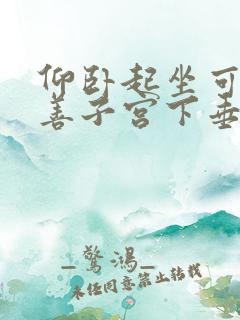 仰卧起坐可
善子宫下垂
_惊鸿_
未经同意禁止转载